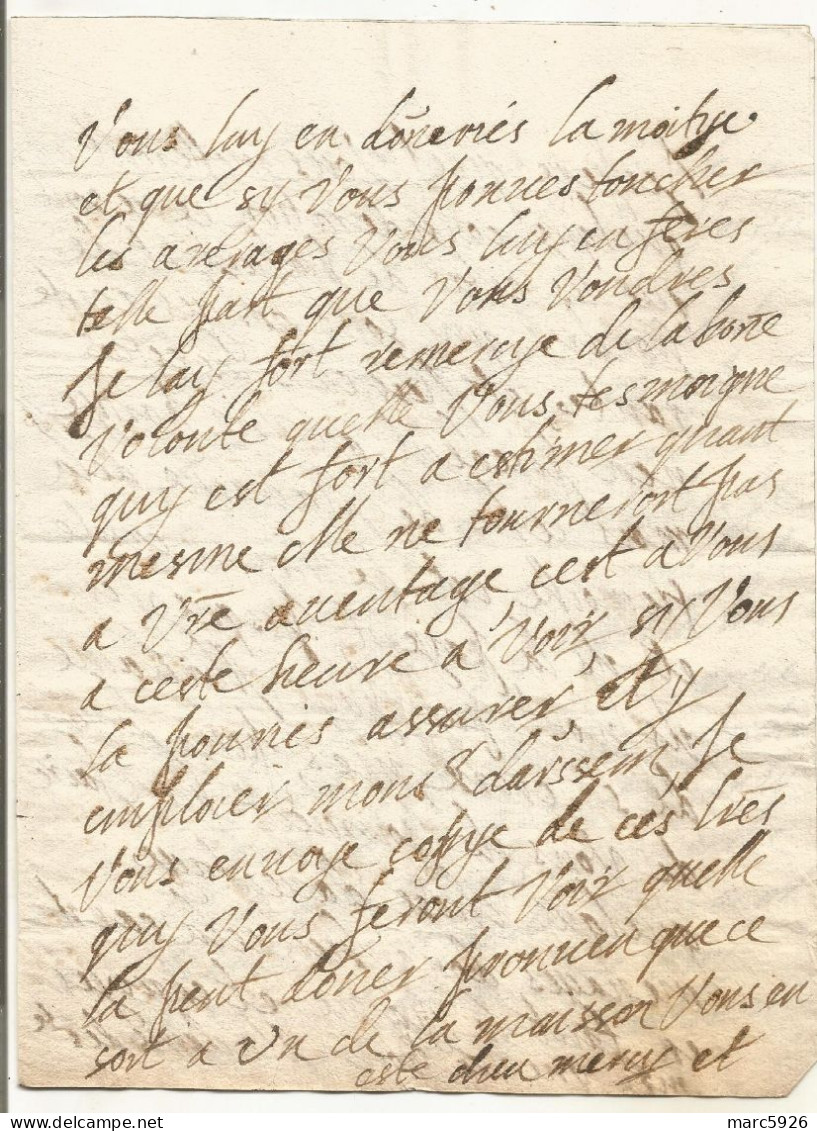 Vous luy en dõneriés la moitye
et que sy Vous pouues toucher
les arerages Vous luy en feres
telle part que Vous Voudres
Je lay fort remersye de la bone
Volonte quelle Vous tesmoigne
quy est fort a estimer quant
mesme elle ne tourneroit pas
a Vr̃e auentage cest a Vous
a ceste heure a Voir sy Vous
la pouriés assurer et y
emploier monsr darssein Je
Vous enuoye copye de ces lr̃es
quy Vous feront Voir quelle
la peut dõner pourueu que ce
soit a Vn de la maisson Vous en
este dieu mersy et
marc5926